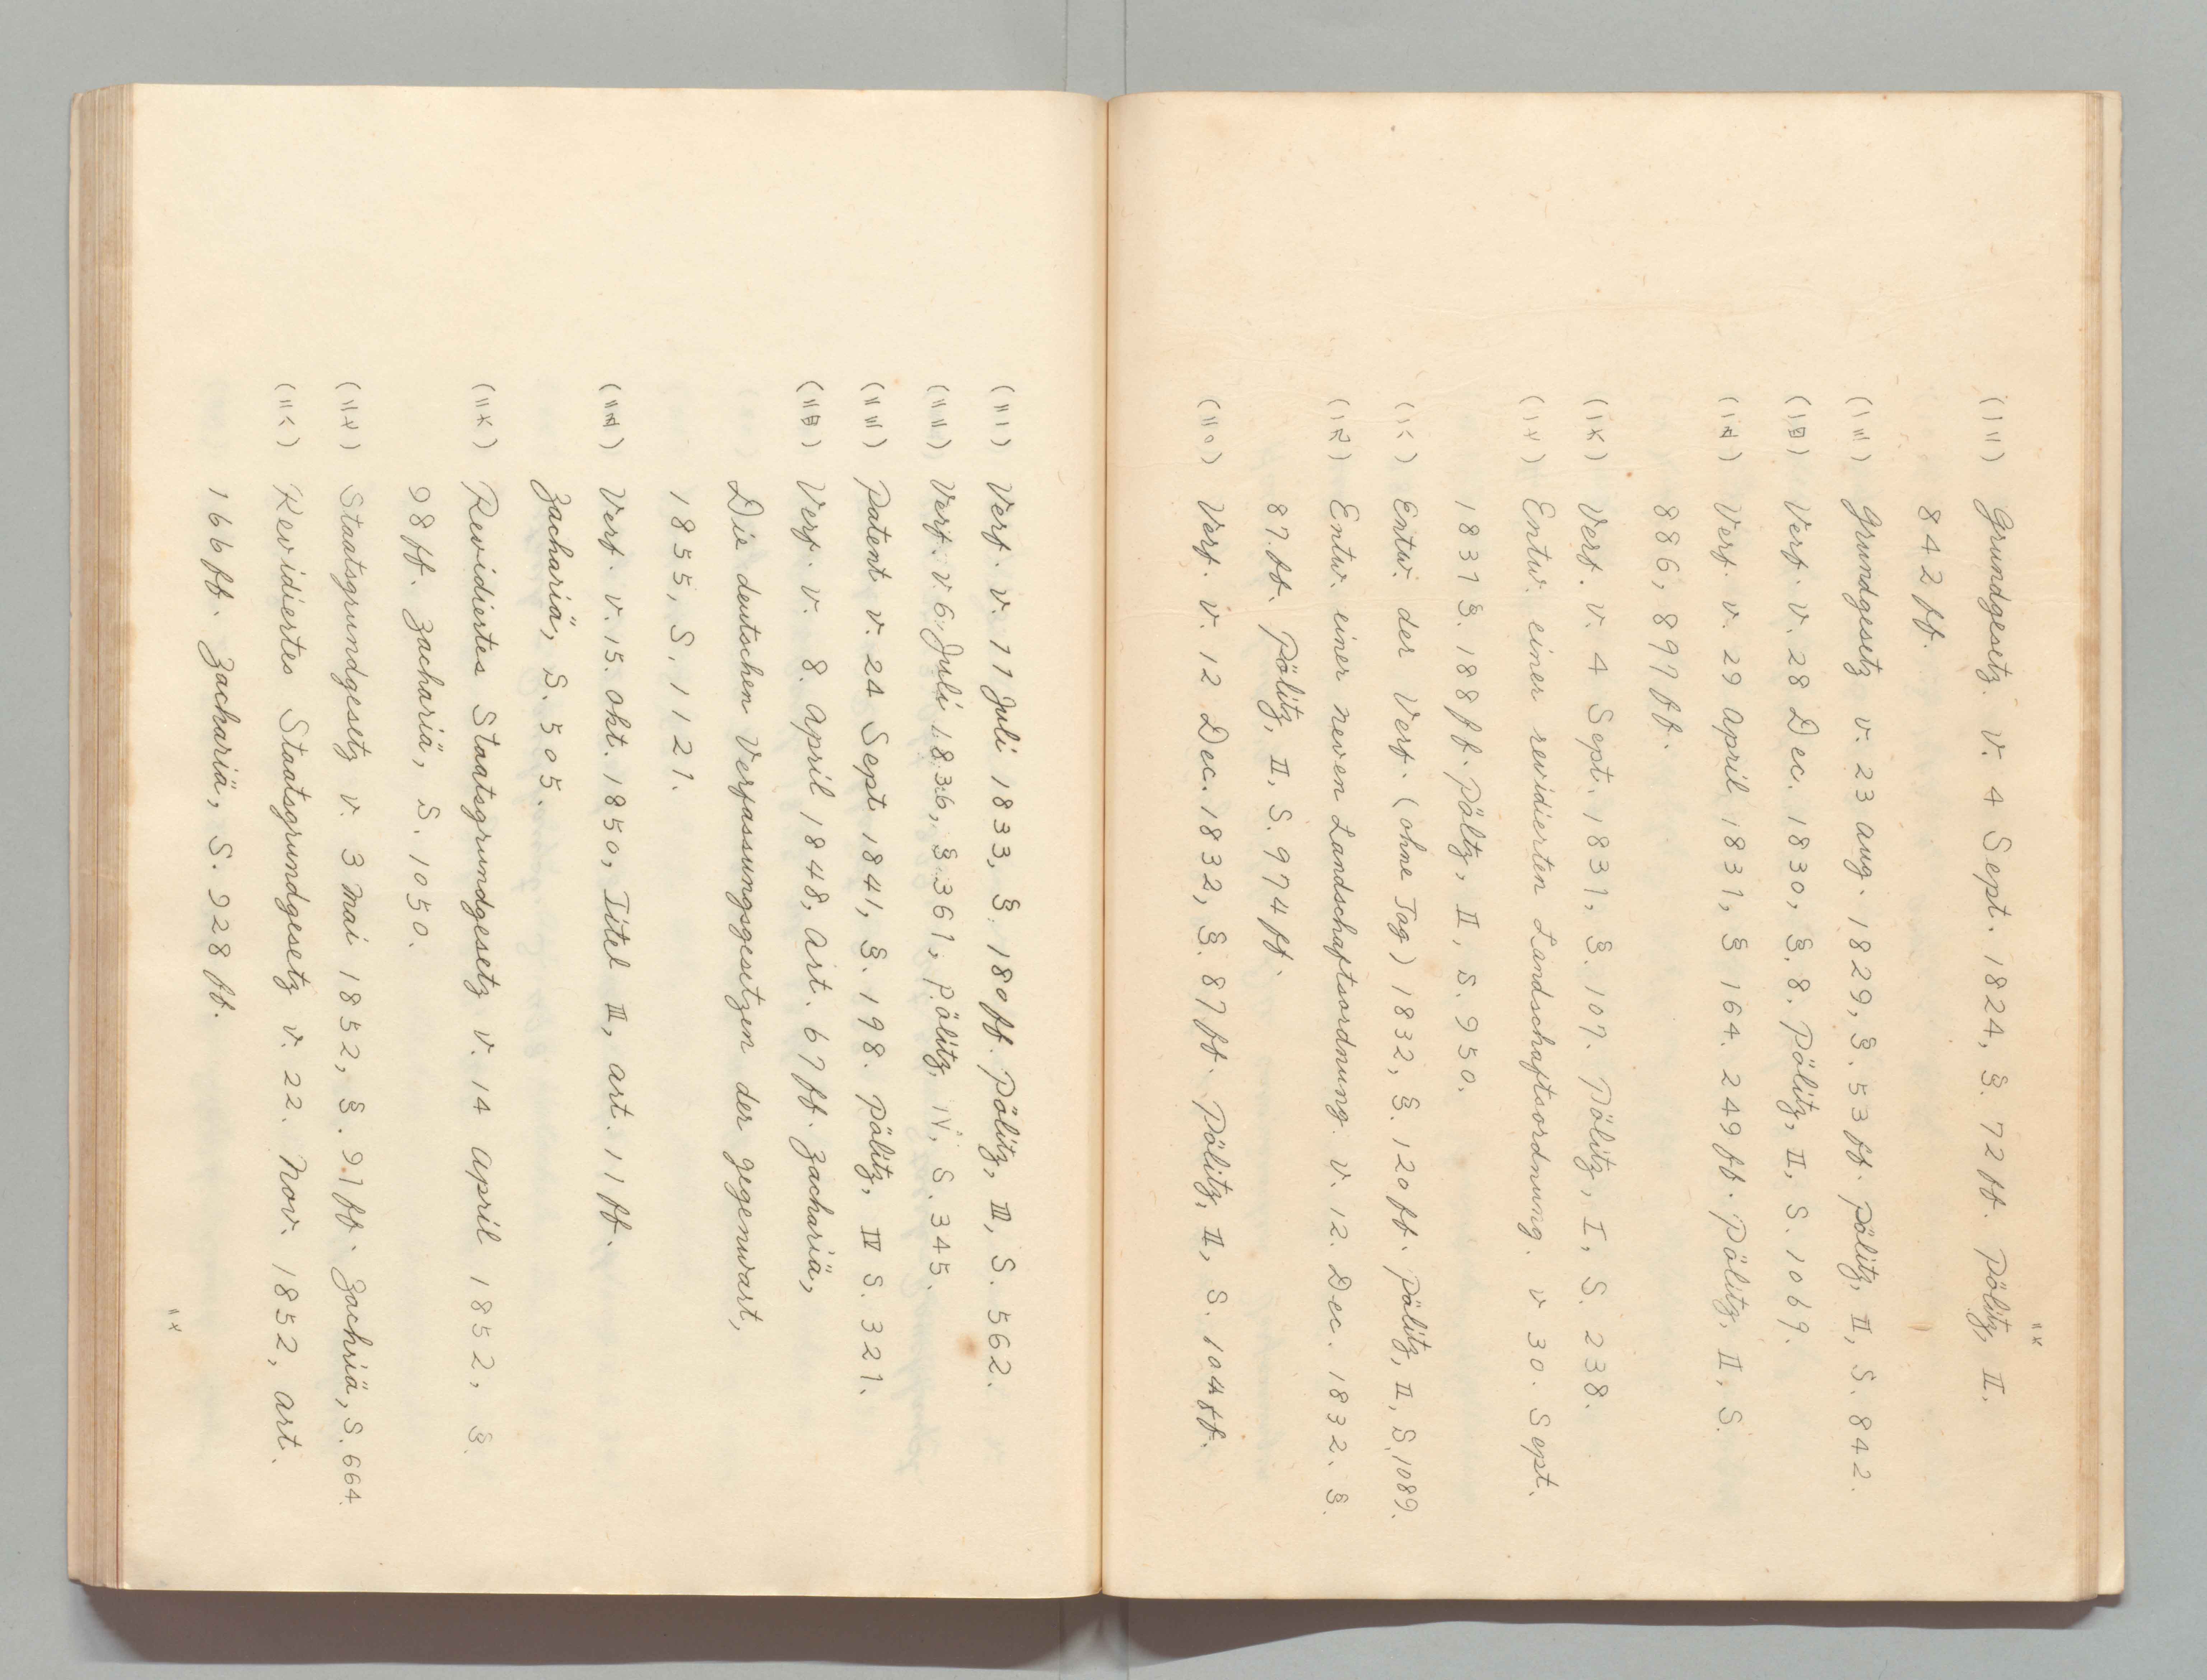 二六
(一二) Grundgesetz v. 4 Sept. 1824, §. 72 ff. Pölitz, II.
842 ff.
(一三) Grundgesetz v. 23 Aug. 1829, §. 53 ff. Pölitz, II, S. 842.
(一四) Verf. v. 28 Dec. 1830, §. 8. Pölitz, II, S. 1069.
(一五) Verf. v. 29 April 1831, § 164. 249 ff. Pölitz, II, S.
886, 897 ff.
(一六) Verf. v. 4 Sept. 1831, §. 107. Pölitz, I, S. 238.
(一七) Entw. einer revidierten Landschaftsordnung. v 30. Sept.
1831 §. 188 ff. Pölitz, II, S. 950.
(一八) Entw. der Verf. (ohne Tag) 1832, §. 120 ff. Pölitz, II, S. 1089.
(一九) Entw. einer neven Landschaftsordnung. v. 12. Dec. 1832. §.
87. ff. Pölitz, II, S. 974 ff.
(二〇) Verf. v. 12 Dec. 1832, §. 87 ff. Pölitz, II, S. 104 ff.
(二一) Verf. v. 17 Juli 1833, §. 180 ff. Pölitz, III, S. 562.
(二二) Verf. v. 6. Juli 1836, §. 361, Pölitz, IV, S. 345.
(二三) Patent v. 24 Sept 1841, §. 198. Pölitz, IV S. 321.
(二四) Verf. v. 8. April 1848, Art. 67 ff. Zachariä,
Die deutschen Verfassungsgesetzen der gegenwart,
1855, S. 1121.
(二五) Verf. v. 15. Okt. 1850, Titel III, Art. 11 ff.
Zachariä, S. 505.
(二六) Revidiertes Staatsgrundgesetz v. 14 April 1852, §.
98 ff. Zachariä, S. 1050.
(二七) Staatsgrundgesetz v. 3 Mai 1852, §. 97 ff. Zachriä, S. 664.
(二八) Revidiertes Staatsgrundgesetz v. 22. Nov. 1852, Art.
166 ff. Zachariä, S. 928 ff.
二七